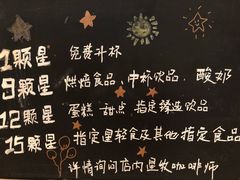 1颗星 免费升杯
9颗星 烘焙食品、中杯饮品、酸奶
12颗星 蛋糕、甜点、指定臻选饮品
15颗星 指定星轻食及其他指定食品
详情询问店内星牧咖啡师